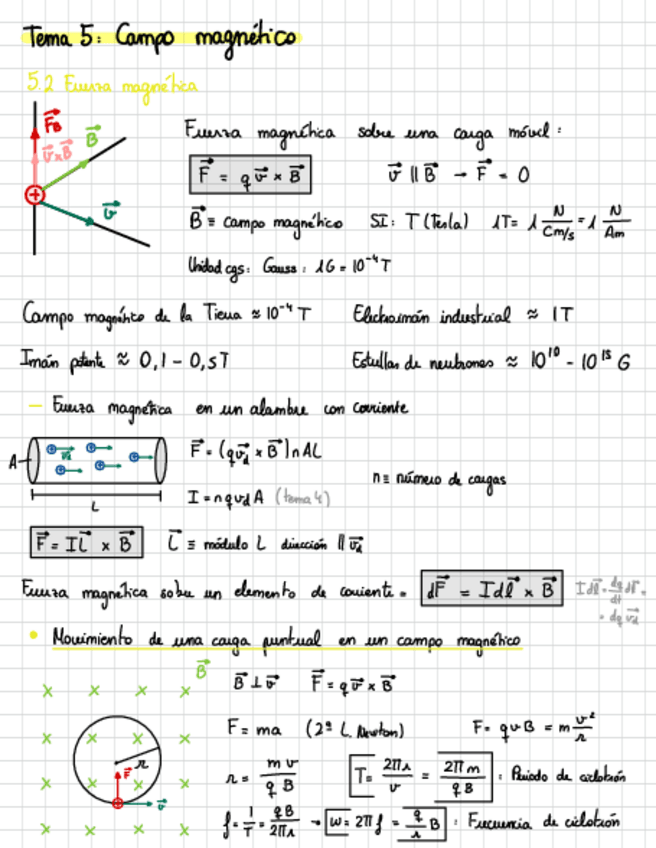 Tema 5: Campo magnético
5.2 Fuerza magnética
F⃗B
v⃗xB⃗
B⃗
v⃗
Fuerza magnética sobre una carga móvil:
F⃗ = q v⃗ × B⃗
v⃗ || B⃗ → F⃗ = 0
B⃗ ≡ campo magnético SI: T (Tesla) 1T = 1 N/Cm/s = 1 N/Am
Unidad cgs: Gauss: 1G = 10⁻⁴ T
Campo magnético de la Tierra ≈ 10⁻⁴ T Electroimán industrial ≈ 1T
Imán potente ≈ 0,1 - 0,5T Estrellas de neutrones ≈ 10¹⁰ - 10¹⁵ G
— Fuerza magnética en un alambre con corriente
A
v⃗d
L
F⃗ = (q v⃗d × B⃗) n A L
n ≡ número de cargas
I = n q vd A (tema 4)
F⃗ = I L⃗ × B⃗ L⃗ ≡ módulo L dirección || v⃗d
Fuerza magnética sobre un elemento de corriente = dF⃗ = I dl⃗ × B⃗
I dl⃗ = dq/dt dl⃗ =
= dq v⃗d
• Movimiento de una carga puntual en un campo magnético
B⃗
x x x x
x x x x
x x x x
x x x x
r
F⃗
v⃗
B⃗ ⊥ v⃗ F⃗ = q v⃗ × B⃗
F = ma (2ª L. Newton) F = q v B = m v²/r
r = m v / q B T = 2πr/v = 2πm/qB : Periodo de ciclotrón
f = 1/T = qB/2πr → ω = 2πf = q/r B : Frecuencia de ciclotrón